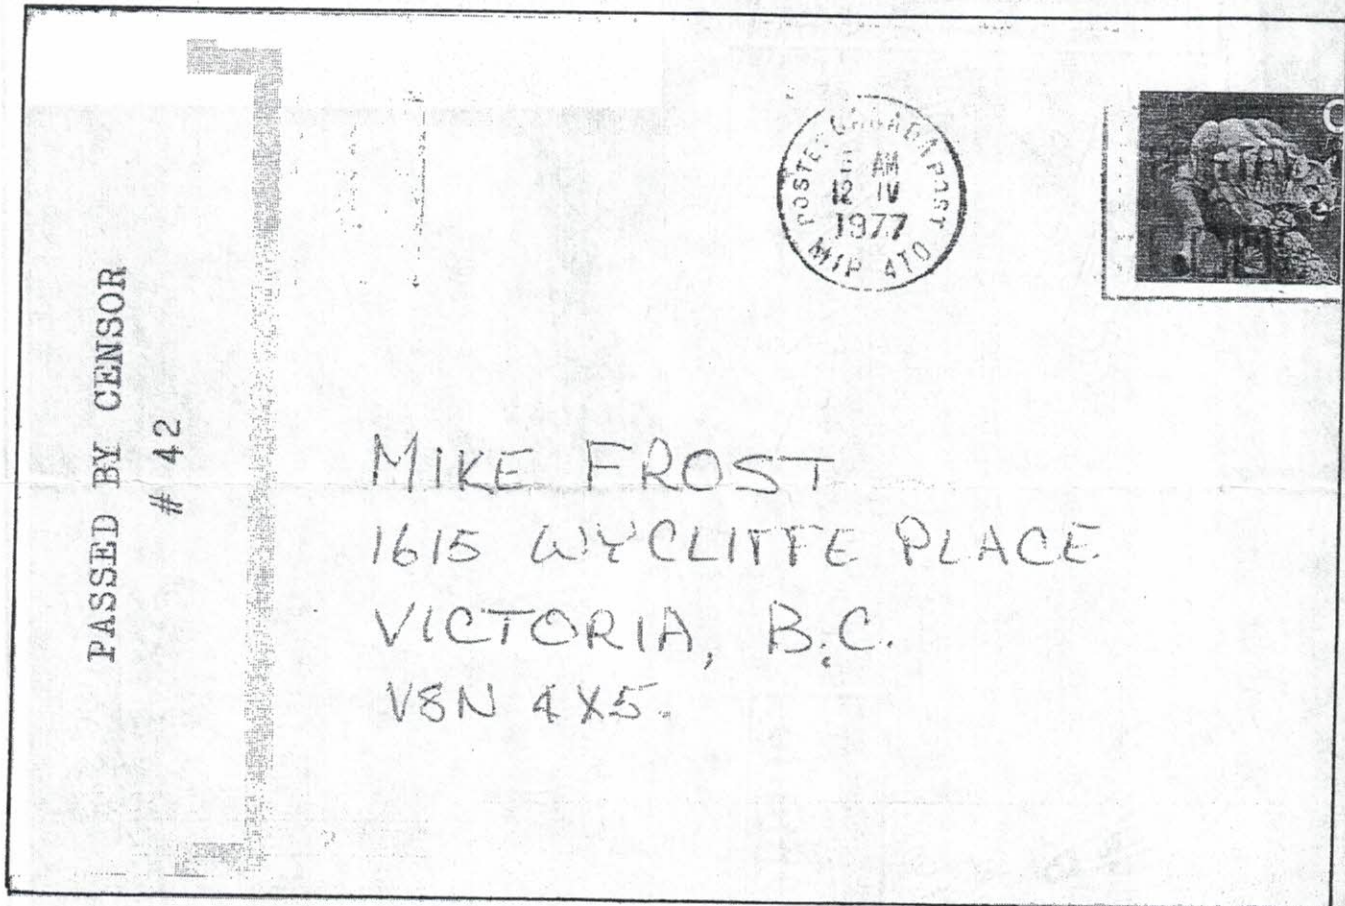 PASSED BY CENSOR
# 42
POSTES CANADA POST
AM
12 IV
1977
4T0
MIKE FROST
1615 WYCLIFFE PLACE
VICTORIA, B.C.
V8N 4X5.